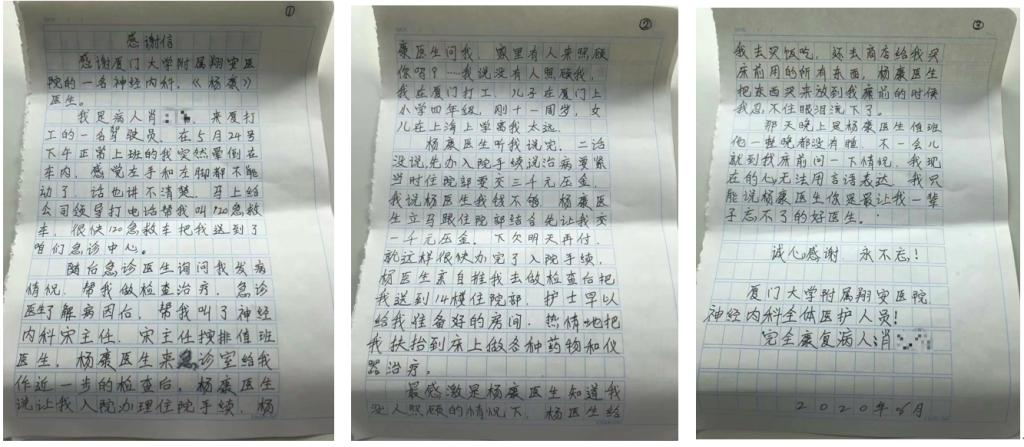 ①
感谢信
感谢厦门大学附属翔安医
院的一名神经内科，《杨康》
医生。
我是病人肖：来厦打
工的一名驾驶员，在5月24号
下午正常上班的我突然晕倒在
车内，感觉左手和左脚都不能
动了，话也讲不清楚，马上给
公司领导打电话帮我叫120急救
车，很快120急救车把我送到了
咱们急诊中心。
随后急诊医生询问我发病
情况，帮我做检查治疗，急诊
医生了解病因后，帮我叫了神经
内科宋主任，宋主任按排值班
医生，杨康医生来急诊室给我
作近一步的检查后，杨康医生
说让我入院办理住院手续，杨
②
康医生问我，家里有人来照顾
你吗？……我说没有人照顾我，
我在厦门打工，儿子在厦门上
小学四年级，刚十一周岁，女
儿在上海上学离我太远，
杨康医生听我说完，二话
没说，先办入院手续说治病要紧
当时住院部要交三千元压金，
我说杨医生我钱不够，杨康医
生立马跟住院部结合先让我交
一千元压金，下欠明天再付，
就这样很快办完了入院手续，
杨医生亲自推我去做检查后把
我送到14楼住院部，护士早以
给我准备好的房间，热情地把
我扶抬到床上做各种药物和仪
器治疗。
最感激是杨康医生知道我
没人照顾的情况下，杨医生给
③
我去买饭吃，还去商店给我买
床前用的所有东西，杨康医生
把东西买来放到我床前的时候
我忍不住眼泪流下了。
那天晚上是杨康医生值班
他一整晚都没有睡，不一会儿
就到我床前问一下情况，我现
在的心无法用言语表达，我只
能说杨康医生你是最让我一辈
子忘不了的好医生。
诚心感谢 永不忘！
厦门大学附属翔安医院
神经内科全体医护人员！
完全康复病人：肖
2020年6月